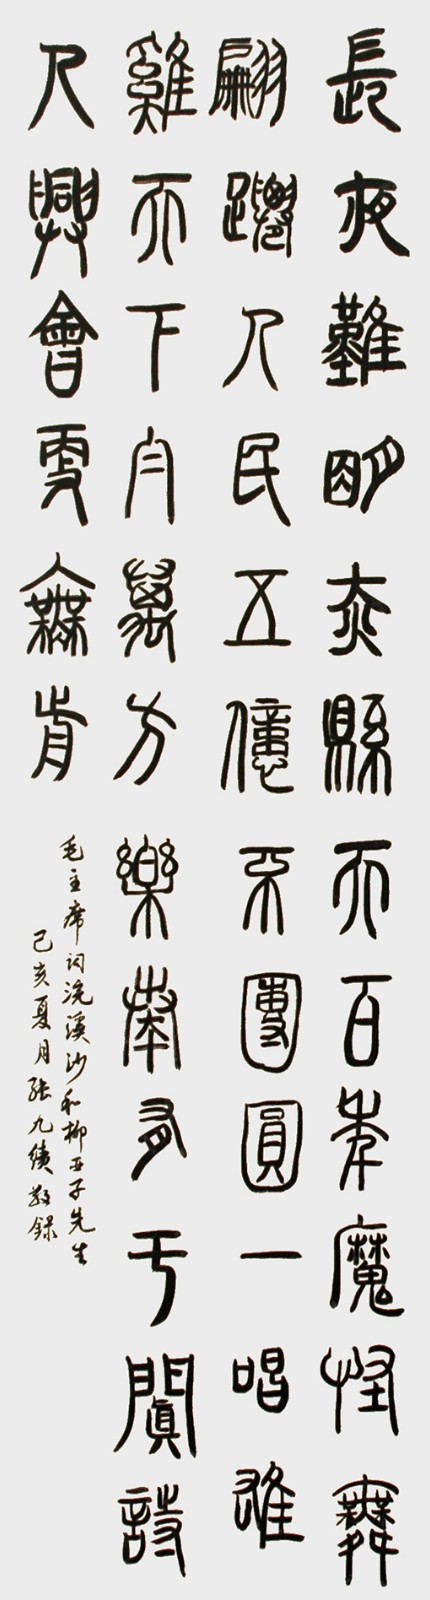 長夜難明赤縣天百年魔怪舞
翩躚人民五億不團圓一唱雄
雞天下白萬方樂奏有于闐詩
人興會更無前
毛主席詞浣溪沙和柳亞子先生
己亥夏月張九績敬錄